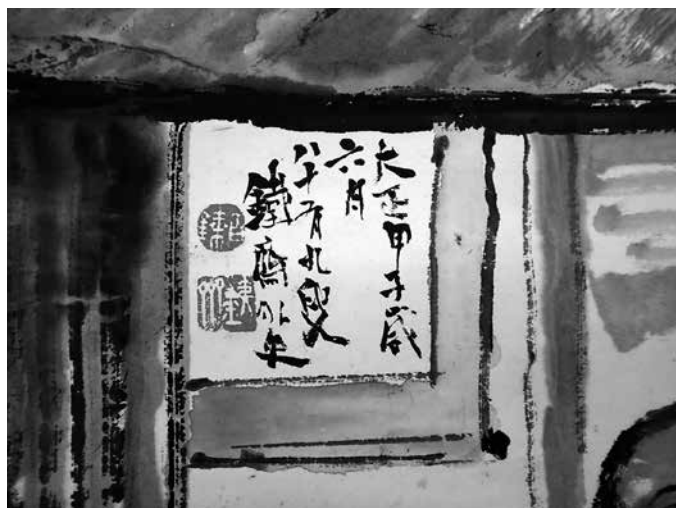 大正甲子歳
六月
八十有九叟
鐵齋外史